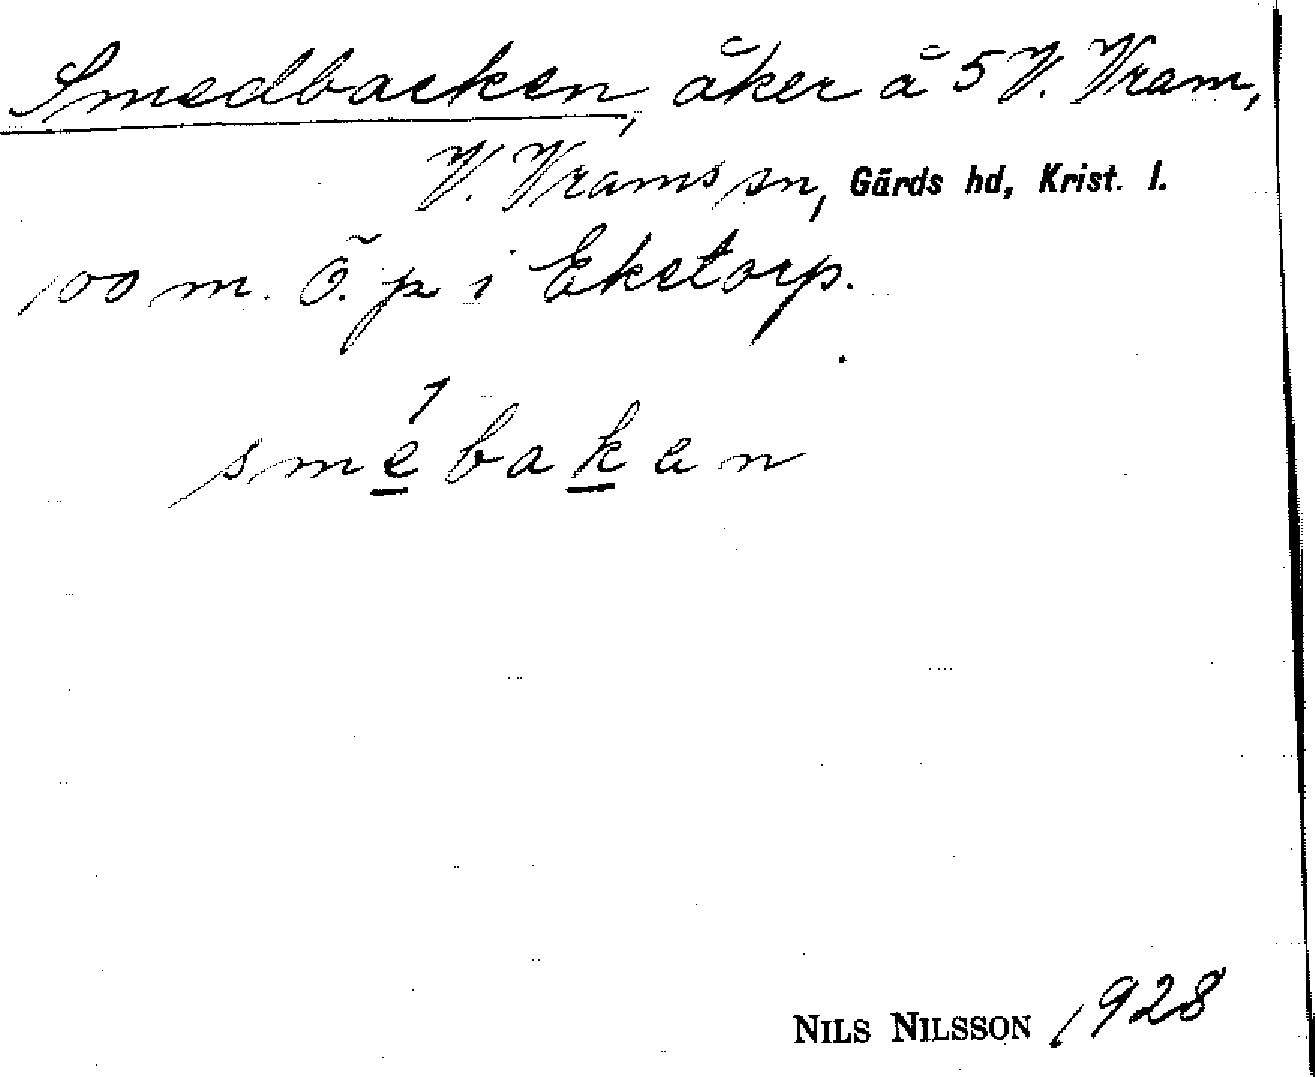 Smedbacken, åker å 5 V. Vram,
V. Vrams sn, Gärds hd, Krist. l.
100 m. Ö. p i Ekstorp.
smebaken
NILS NILSSON 1928